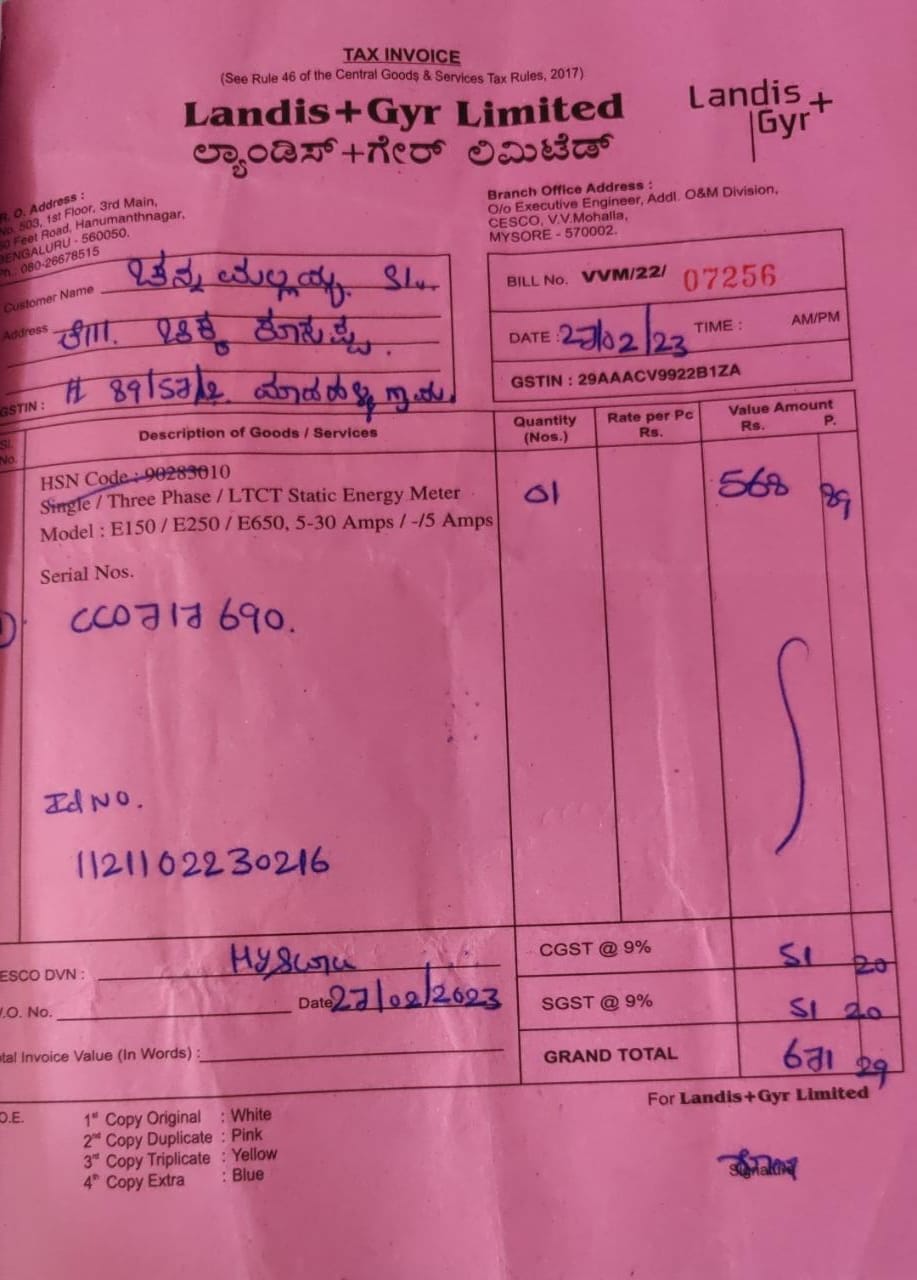 TAX INVOICE
(See Rule 46 of the Central Goods & Services Tax Rules, 2017)
Landis+Gyr Limited
ಲ್ಯಾಂಡಿಸ್+ಗೇರ್ ಲಿಮಿಟೆಡ್
Landis+
Gyr
R. O. Address :
No. 503, 1st Floor, 3rd Main,
Feet Road, Hanumanthnagar,
BENGALURU - 560050.
Ph.: 080-26678515
Branch Office Address :
O/o Executive Engineer, Addl. O&M Division,
CESCO, V.V.Mohalla,
MYSORE - 570002.
Customer Name
Address
GSTIN : # 89/57/2
BILL No. VVM/22/ 07256
DATE : 27/02/23 TIME : AM/PM
GSTIN : 29AAACV9922B1ZA
Sl. No. Description of Goods / Services Quantity (Nos.) Rate per Pc Rs. Value Amount Rs. P.
HSN Code : 90283010
Single / Three Phase / LTCT Static Energy Meter 01 568 89
Model : E150 / E250 / E650, 5-30 Amps / -/5 Amps
Serial Nos.
1) CC0717690.
Id No.
1121102230216
ESCO DVN : CGST @ 9% 51 20
.O. No. Date 27/02/2023 SGST @ 9% 51 20
tal Invoice Value (In Words) : GRAND TOTAL 671 29
O.E.
1st Copy Original : White
2nd Copy Duplicate : Pink
3rd Copy Triplicate : Yellow
4th Copy Extra : Blue
For Landis+Gyr Limited
Signature